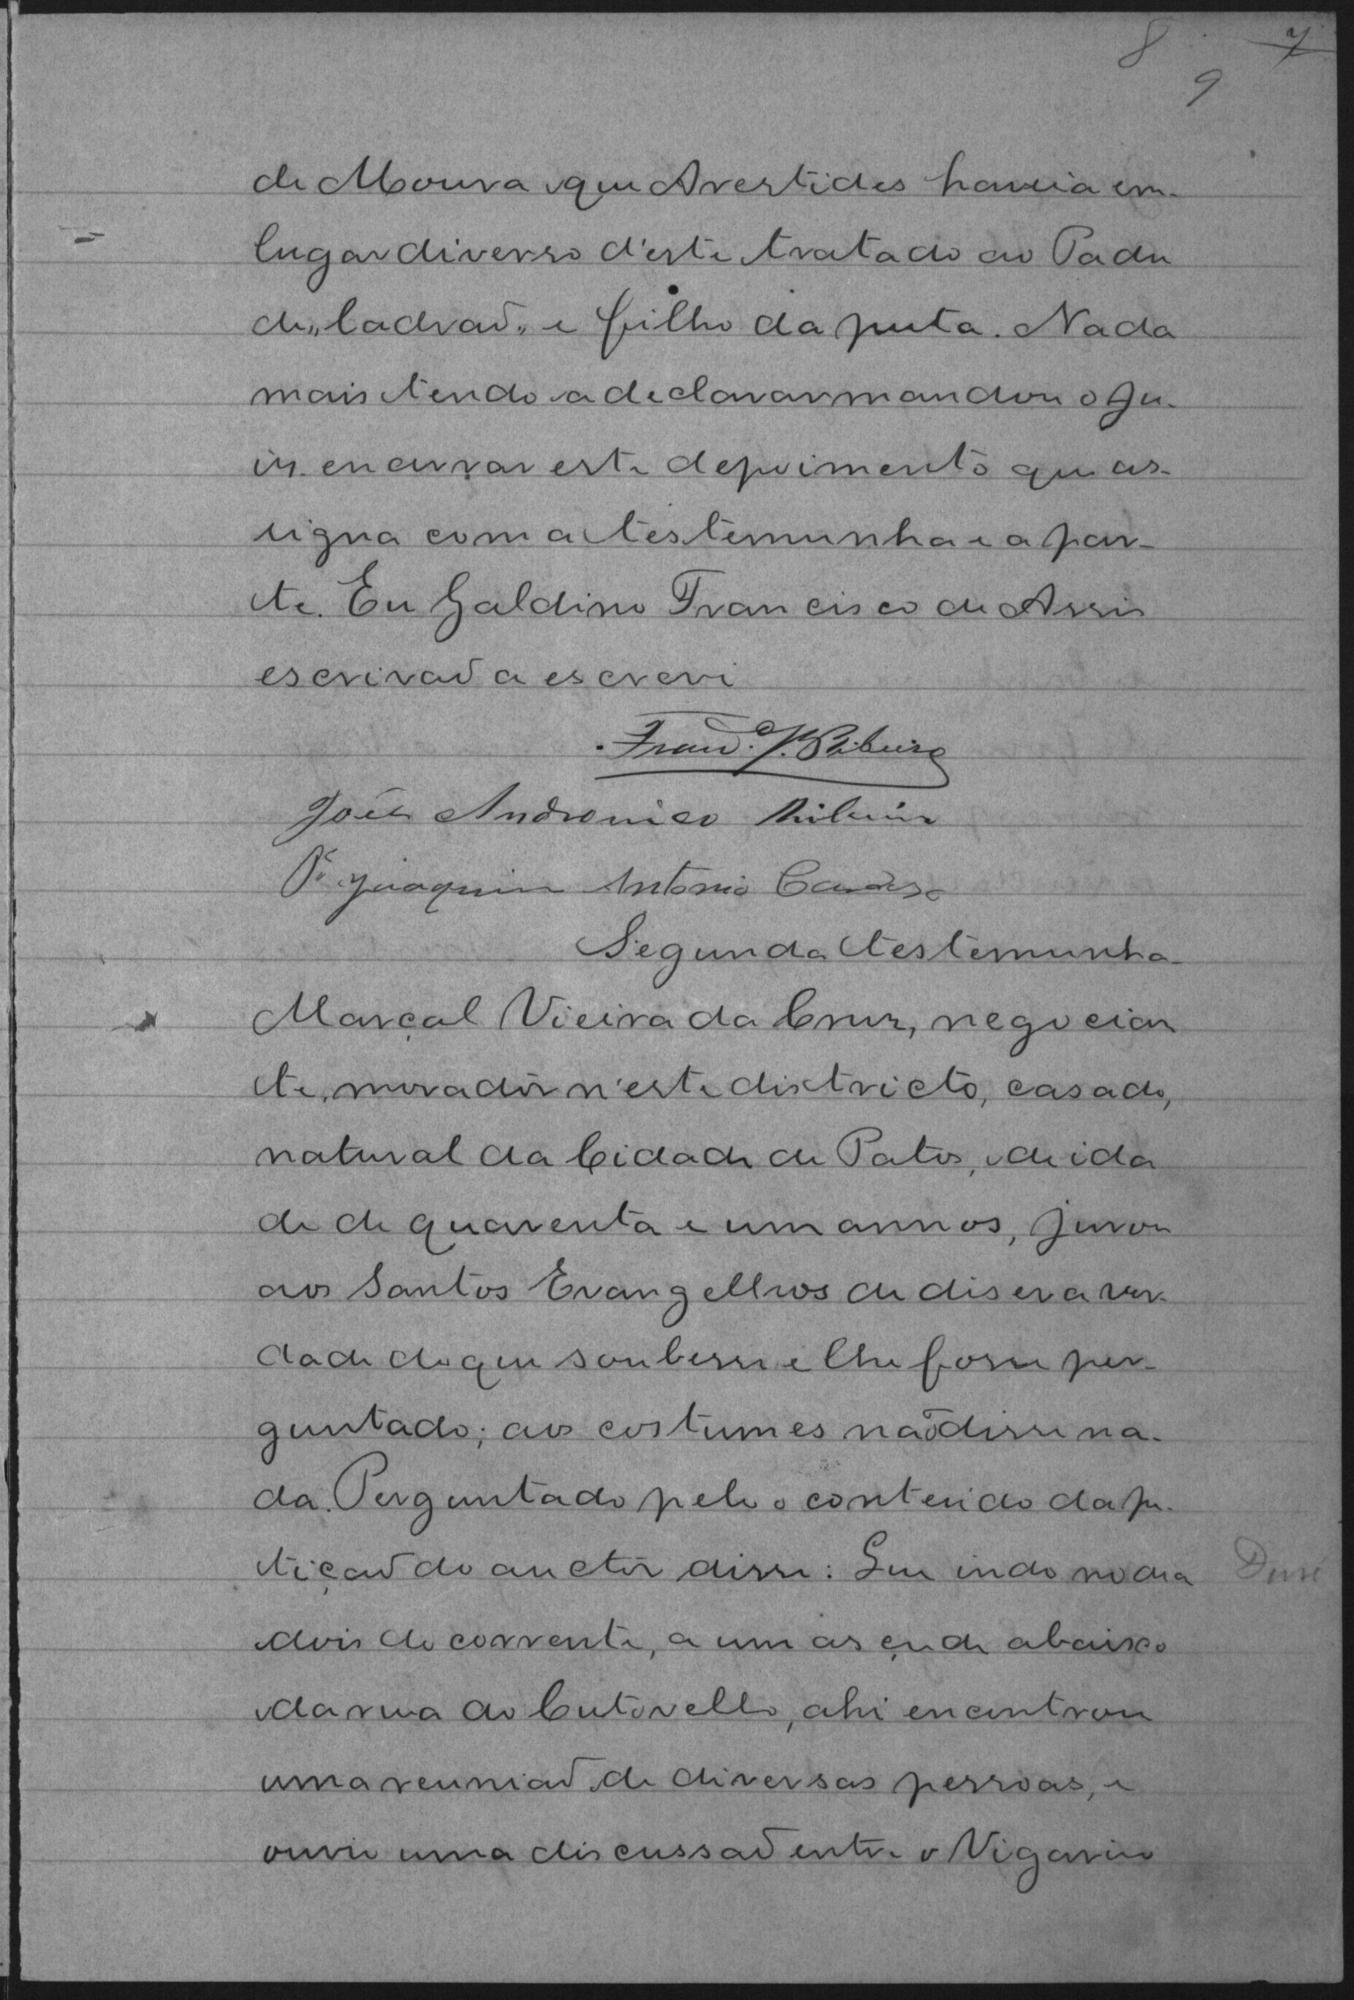 8 7
9
de Moura que Arestides havia em
lugar diverso d'este tratado ao Padre
de „ladraõ„ e filho da puta. Nada
mais tendo a declarar mandou o Ju-
is encerrar este depoimento que as-
signa com a testemunha e a par-
te. Eu Galdino Francisco de Assis
escrivaõ a escrevi
Franc.º J. Ribeiro
João Andronico Ribeiro
Pe Joaquim Antonio Cardoso
Segunda testemunha
Marçal Vieira da Cruz, negocian
te, moradôr n'este districto, casado,
natural da Cidade de Patos, de ida
de de quarenta e um annos, jurou
aos Santos Evangelhos de diser a ver-
dade do que soubesse e lhe fosse per-
guntado; aos costumes naõ disse na-
da. Perguntado pelo o conteudo da pe-
tiçaõ do auctôr disse: Que indo no dia
dois do corrente, a um asçude abaixo
da rua do Cutovello, ahi encontrou
uma reuniaõ de diversas pessoas, e
ouvio uma discussaõ entre o Vigario